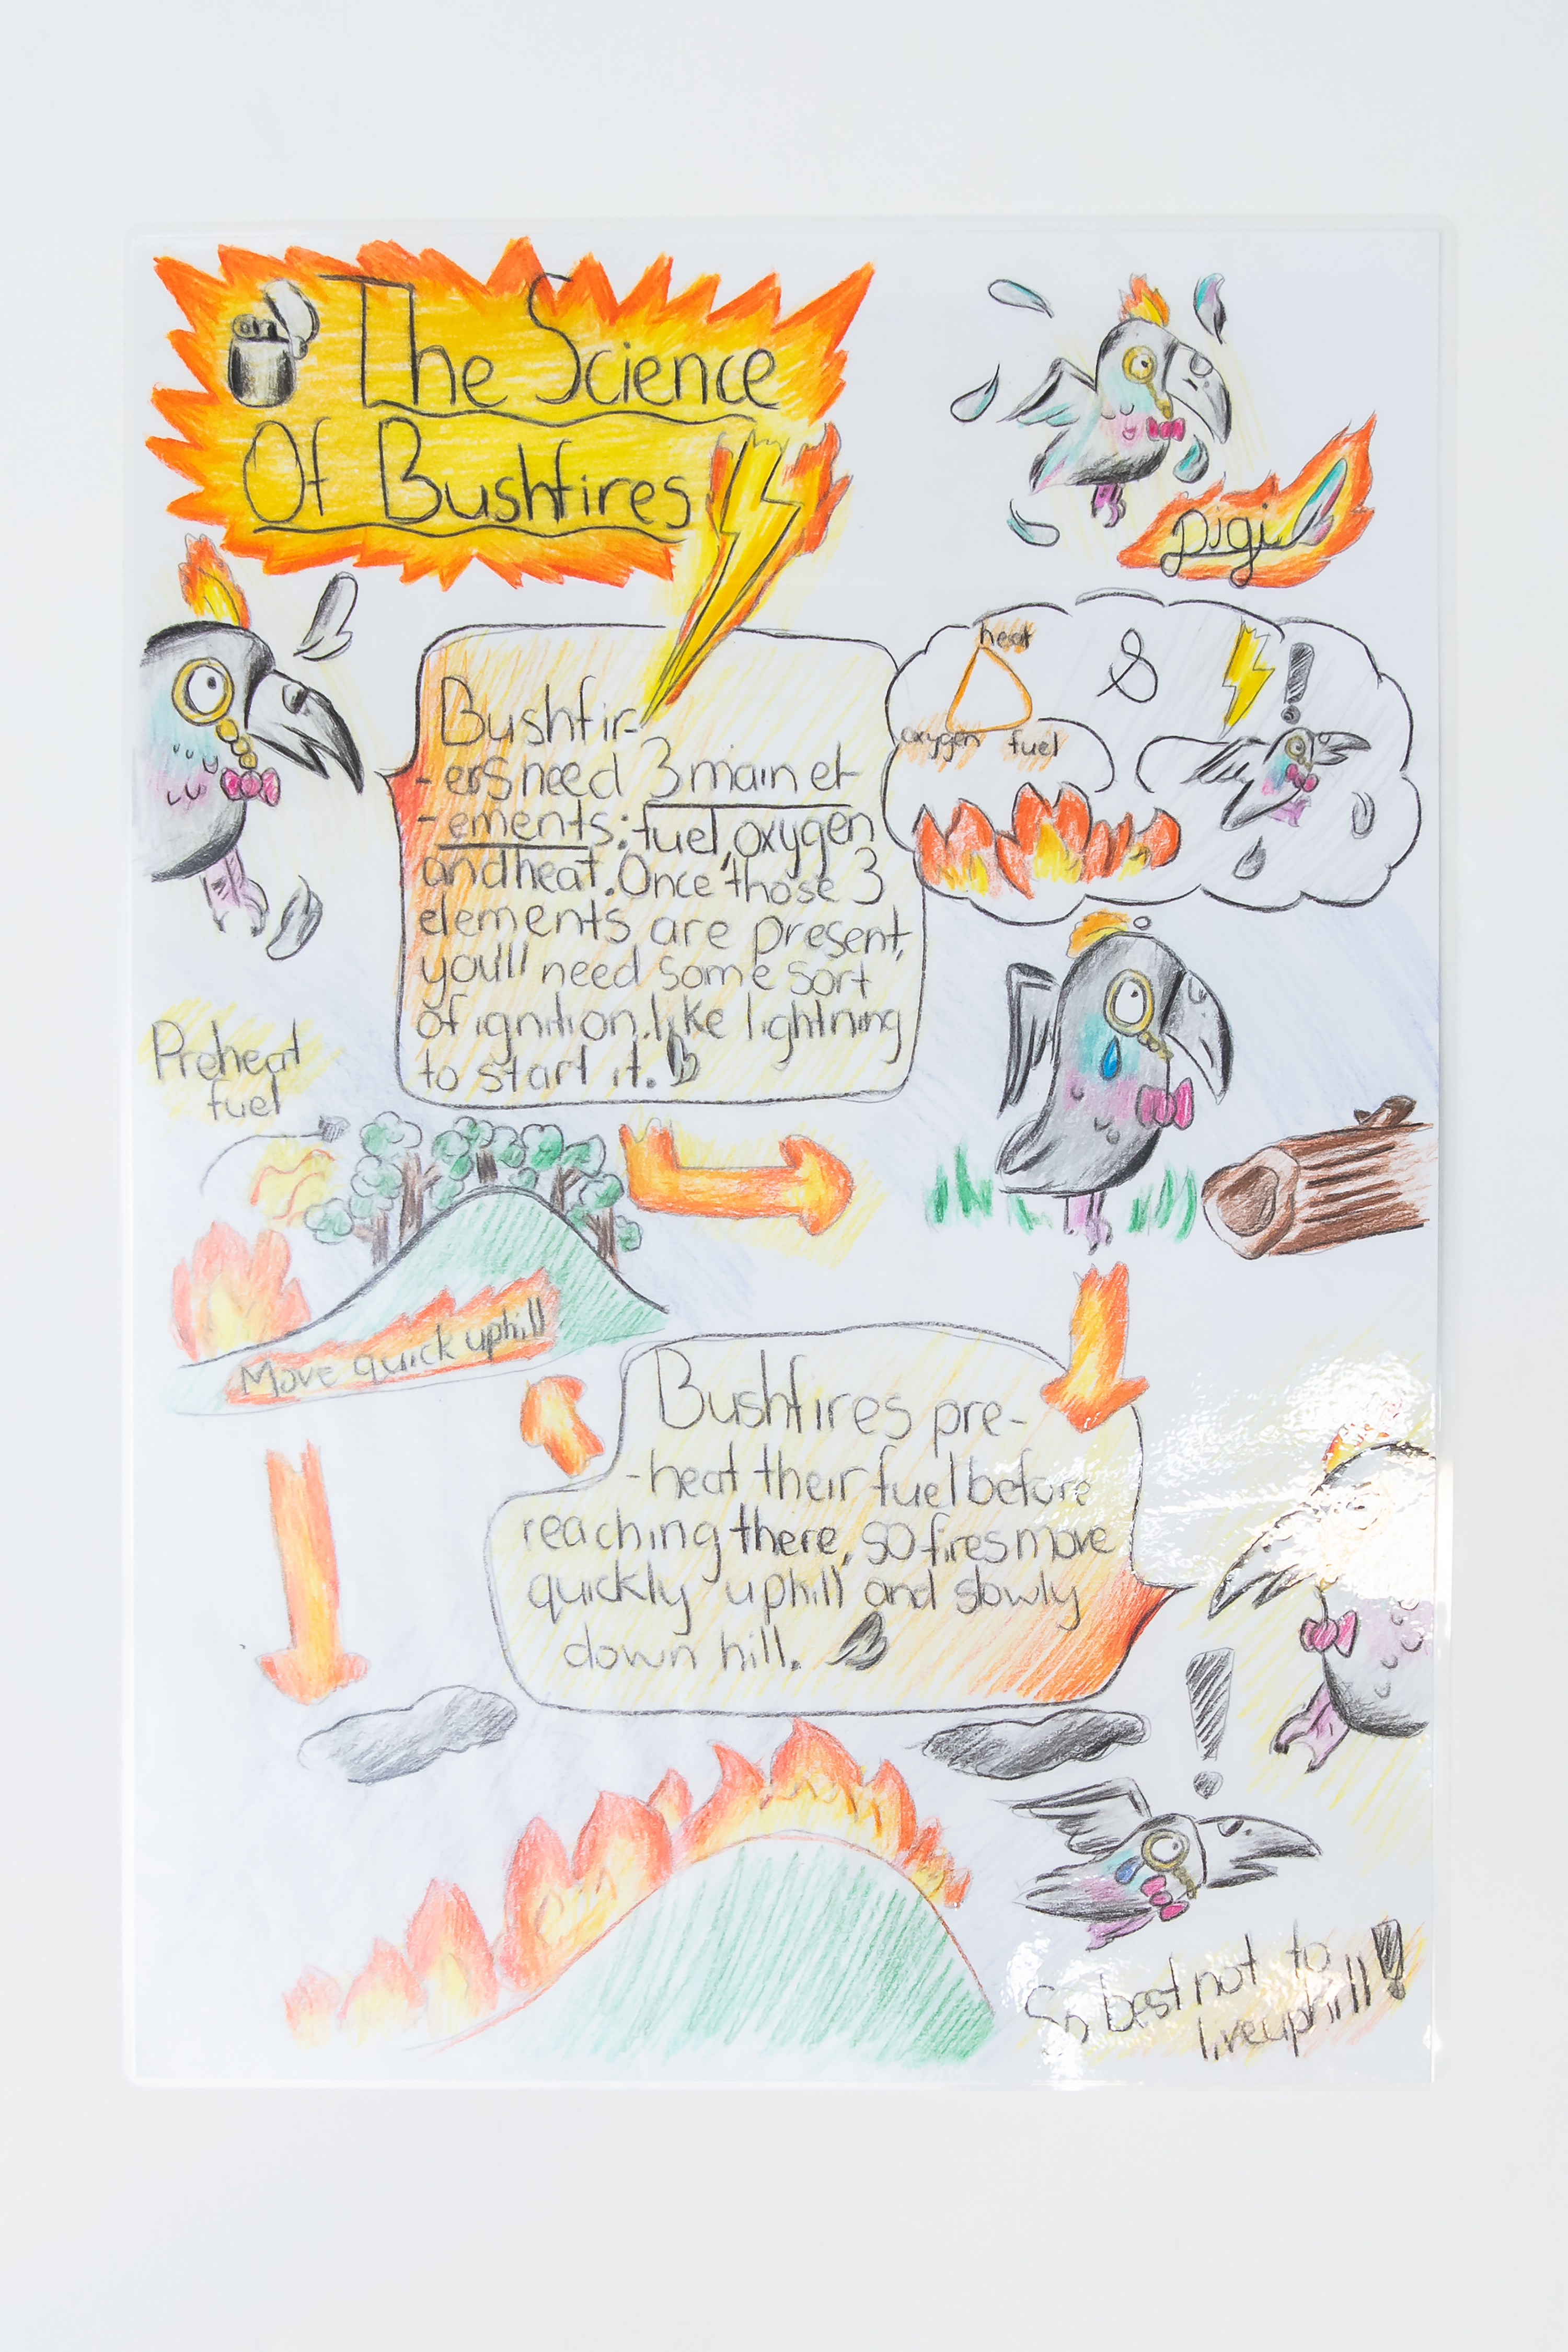 The Science
Of Bushfires
Digi
Bushfir-
-ers need 3 main el-
-ements: fuel, oxygen
and heat. Once those 3
elements are present,
you'll need some sort
of ignition. like lightning
to start it.
heat
&
!
oxygen fuel
Preheat
fuel
Move quick uphill
Bushfires pre-
-heat their fuel before
reaching there, so fires move
quickly uphill and slowly
down hill.
!
So best not to
live uphill!